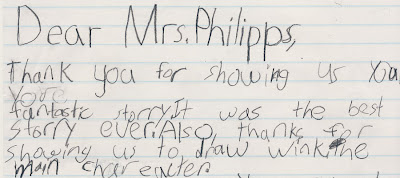 Dear Mrs. Philipps,
Thank you for showing us you
youre
fantastic storry. It was the best
storry ever. Also, thanks for
showing us to draw wink, the
main chareacter.